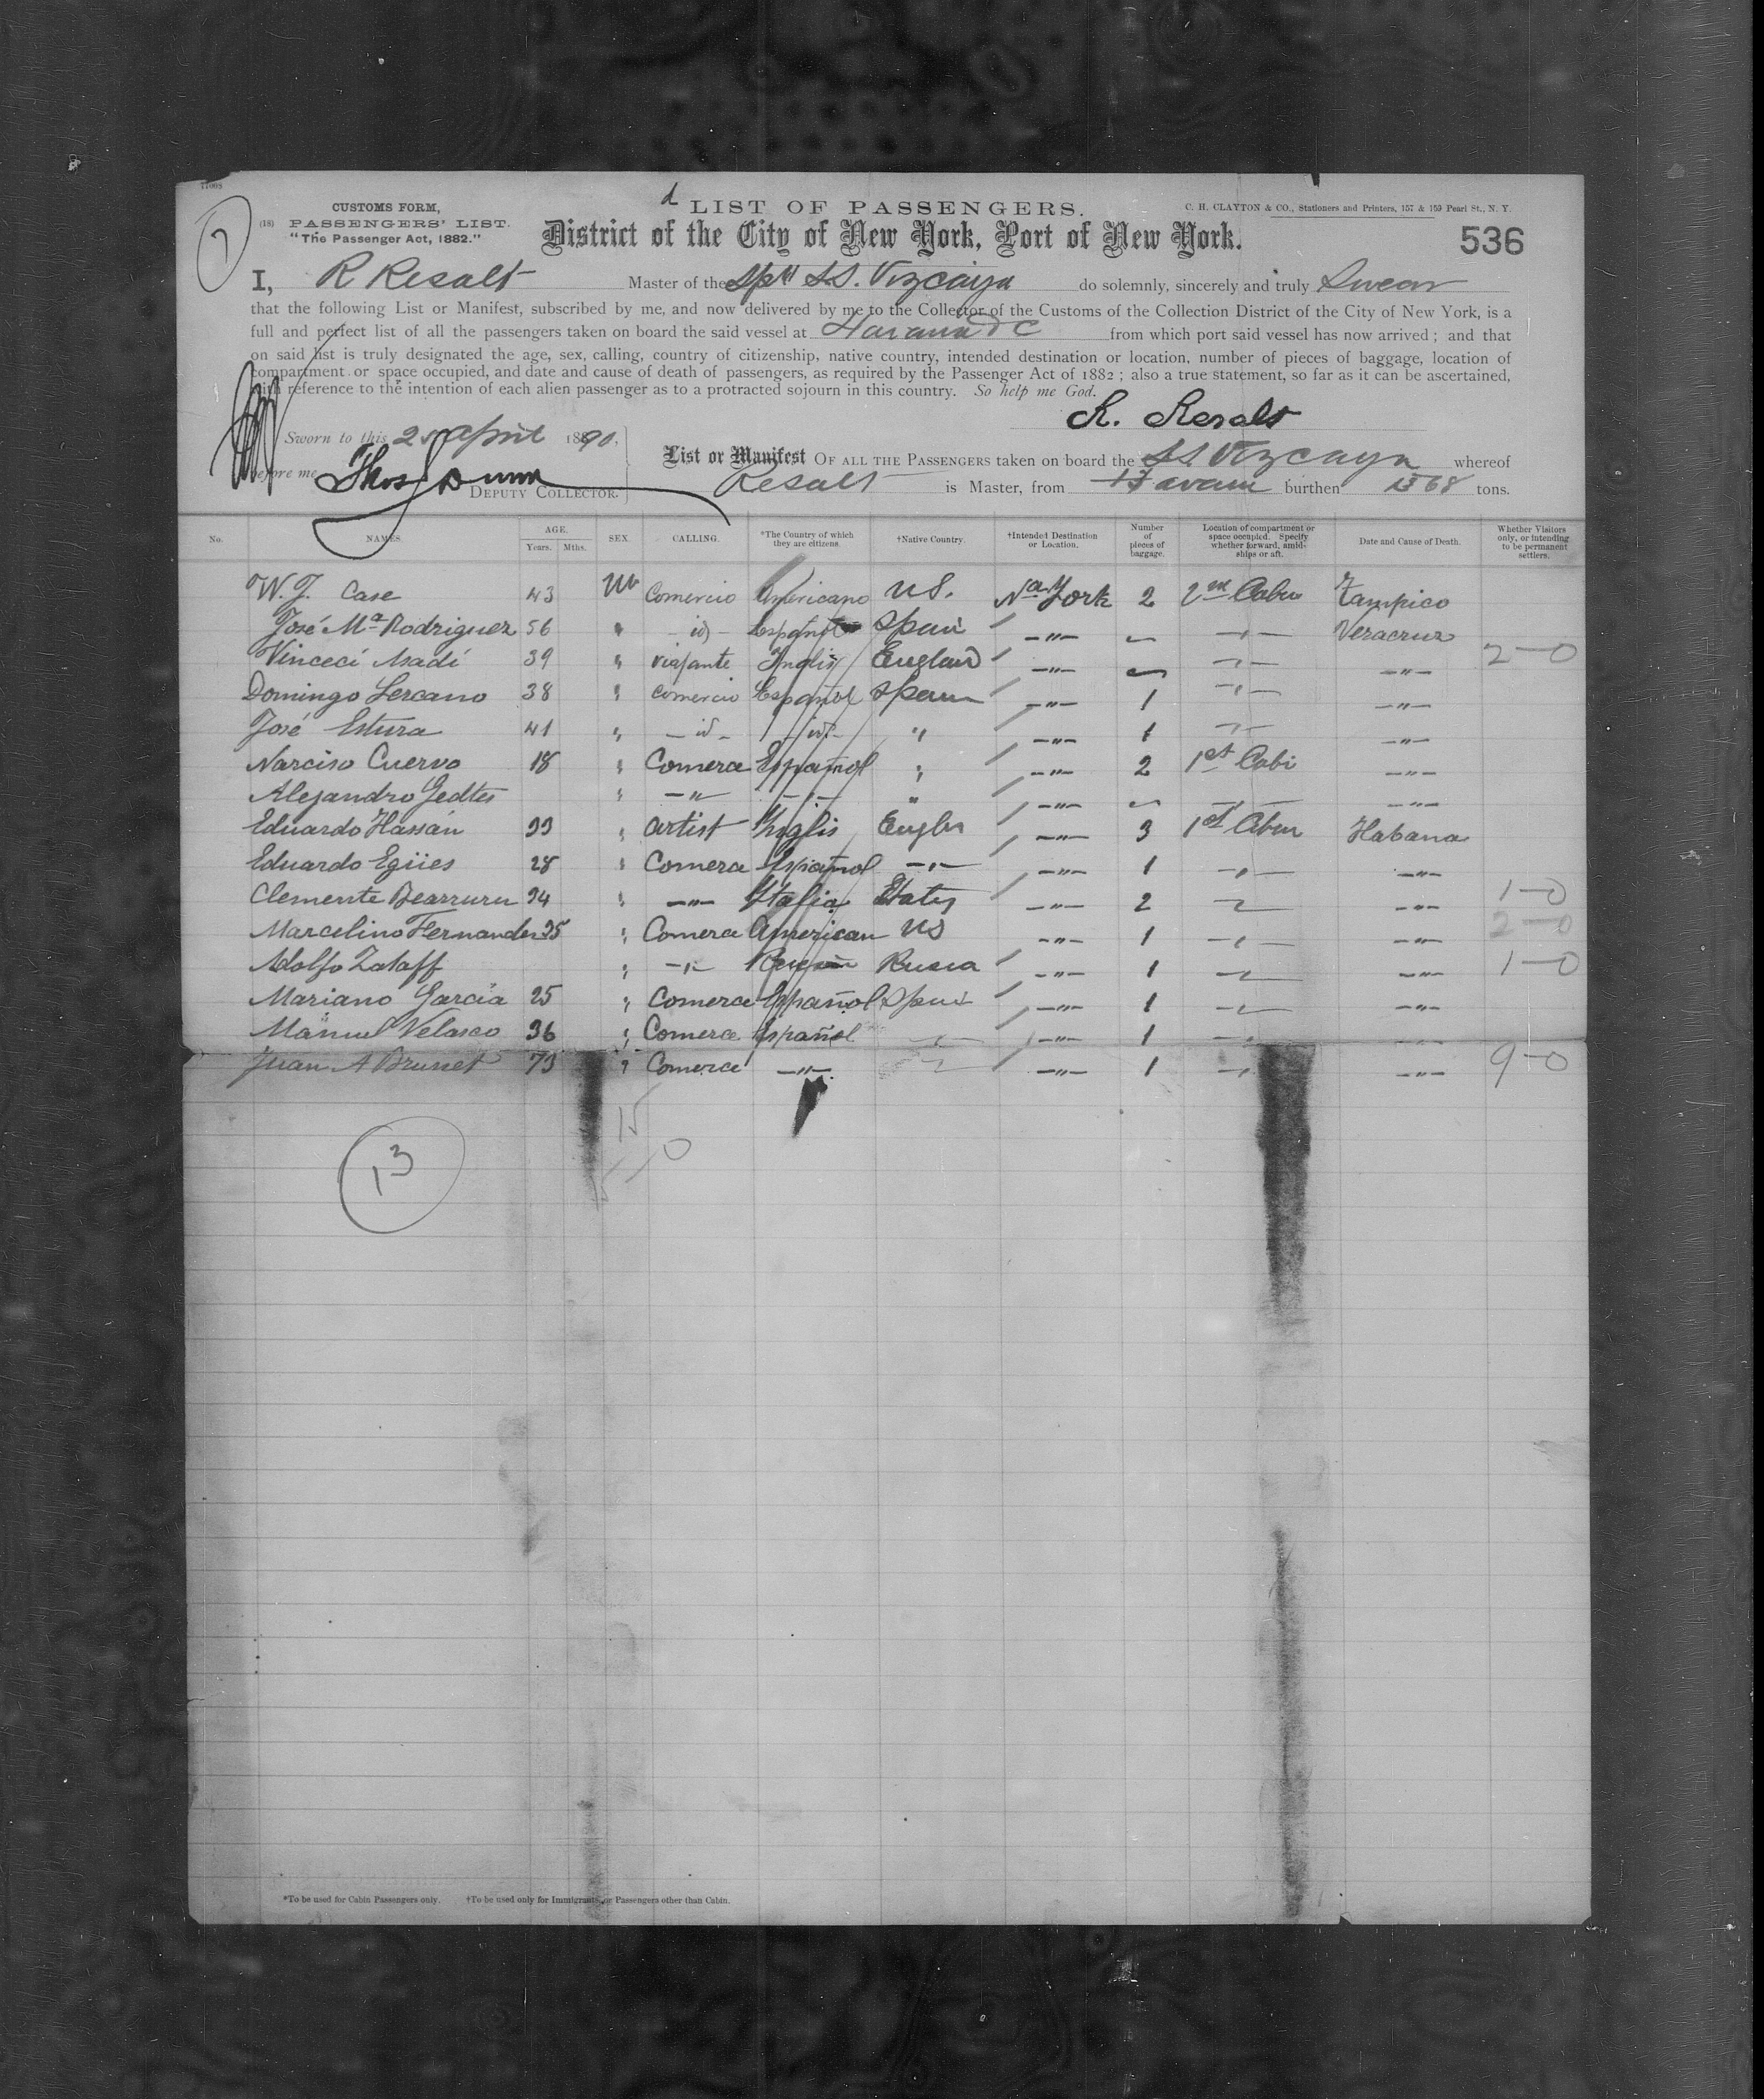 77008
d
CUSTOMS FORM,
LIST OF PASSENGERS.
C. H. CLAYTON & CO., Stationers and Printers, 157 & 159 Pearl St., N. Y.
1
(18) PASSENGERS' LIST.
"The Passenger Act, 1882."
District of the City of New York, Port of New York.
536
I, R Resalt Master of the Sp SS. Vizcaya do solemnly, sincerely and truly Swear
that the following List or Manifest, subscribed by me, and now delivered by me to the Collector of the Customs of the Collection District of the City of New York, is a
full and perfect list of all the passengers taken on board the said vessel at Havana &c from which port said vessel has now arrived; and that
on said list is truly designated the age, sex, calling, country of citizenship, native country, intended destination or location, number of pieces of baggage, location of
compartment or space occupied, and date and cause of death of passengers, as required by the Passenger Act of 1882; also a true statement, so far as it can be ascertained,
with reference to the intention of each alien passenger as to a protracted sojourn in this country. So help me God.
R. Resalt
Sworn to this April 1890,
before me Thos Dunn
DEPUTY COLLECTOR.
List or Manifest OF ALL THE PASSENGERS taken on board the SS. Vizcaya whereof
Resalt is Master, from Havana burthen 1368 tons.
No. NAMES. AGE. Years. Mths. SEX. CALLING. *The Country of which they are citizens. †Native Country. †Intended Destination or Location. Number of pieces of baggage. Location of compartment or space occupied. Specify whether forward, amidships or aft. Date and Cause of Death. Whether Visitors only, or intending to be permanent settlers.
W. J. Case 43 M Comercio Americano US. Na York 2 2nd Cabin Tampico
José Ma Rodriguez 56 " id Español Spain -"- -"- Veracruz
Vincecí Asadí 39 " viajante Inglis England -"- -"- -"- 2-0
Domingo Lercano 38 " comercio Español Spain -"- 1 -"- -"-
José Estura 41 " id id " -"- 1 -"- -"-
Narciso Cuervo 18 " Comerce Español " -"- 2 1st Cabi -"-
Alejandro Gedtes " -"- -"- " -"- -"- -"-
Eduardo Hassán 33 " artist Inglis -"- 3 1st Habana
Eduardo Egües 28 " Comerce Español -"- -"- 1 -"- -"-
Clemente 34 " -"- Italia -"- 2 -"- -"- 1-0
Marcelino Fernandez 35 " Comerce American US -"- 1 -"- -"- 2-0
Adolfo Zataff " -"- Rusia -"- 1 -"- -"- 1-0
Mariano García 25 " Comerce Español Spain -"- 1 -"- -"-
Manuel Velasco 36 " Comerce Español -"- -"- 1 -"- -"-
Juan A Brunet 73 " Comerce -"- -"- -"- 1 -"- -"- 9-0
15
13
*To be used for Cabin Passengers only. †To be used only for Immigrants, or Passengers other than Cabin.